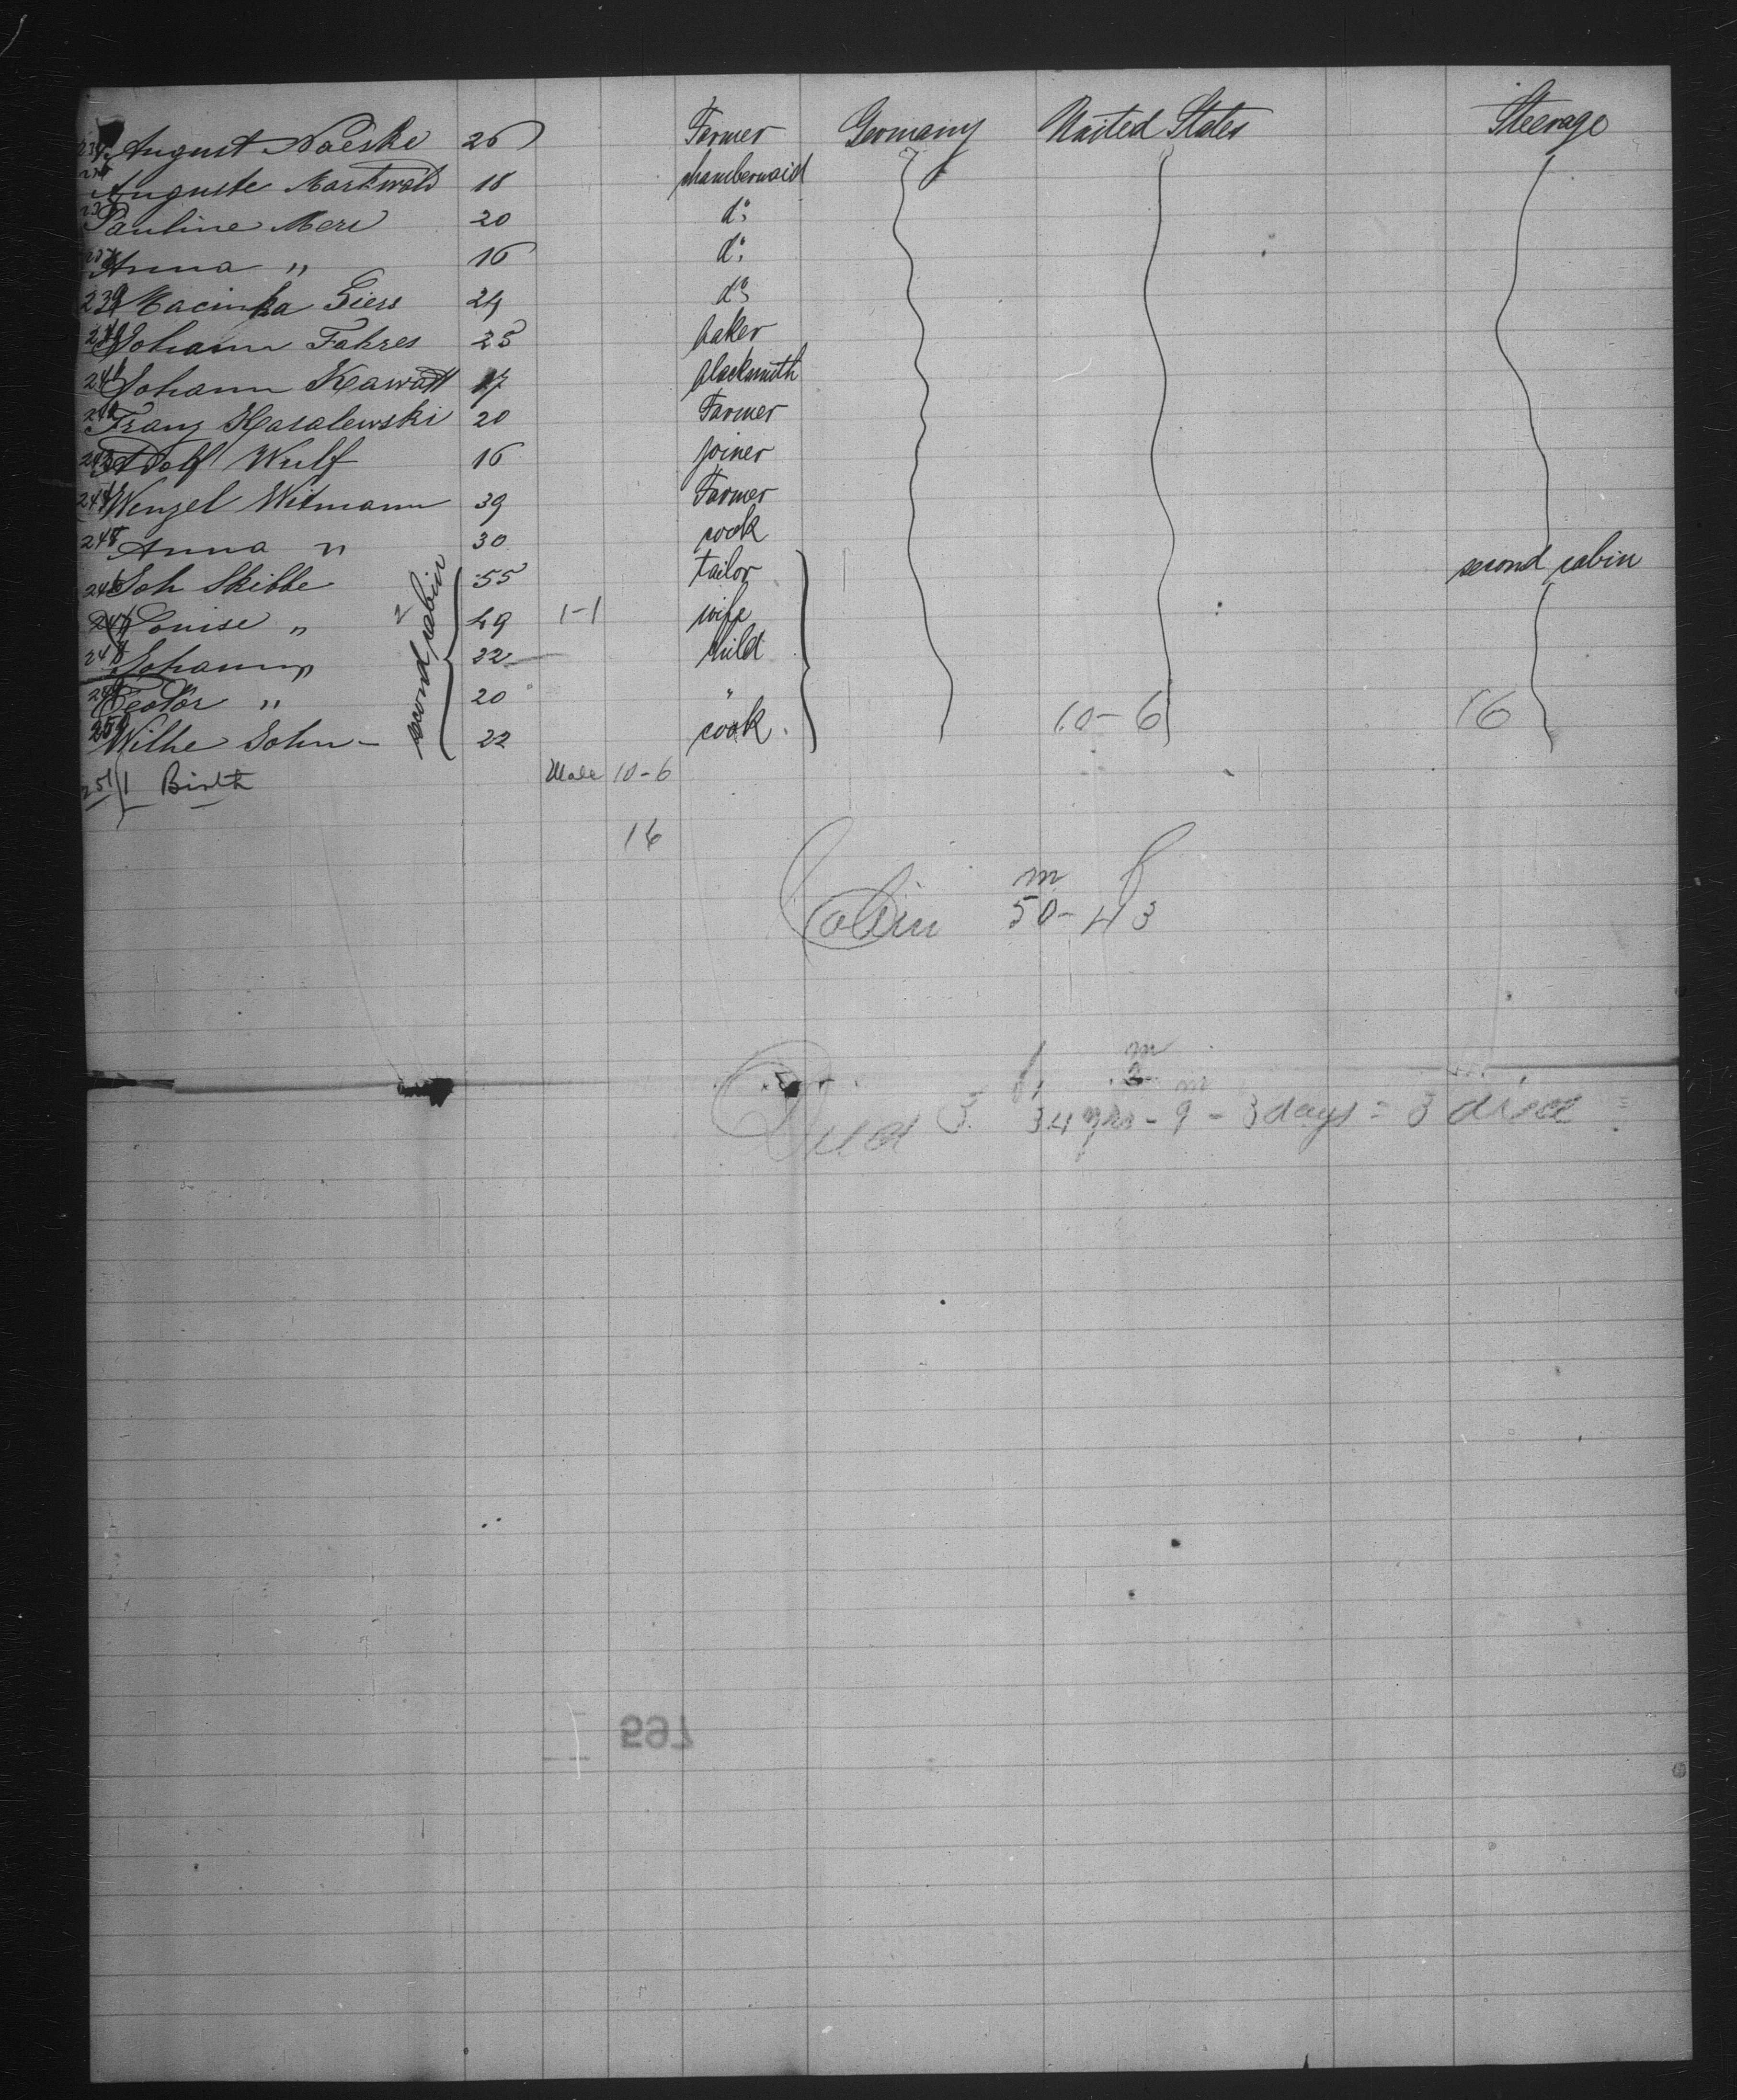 August Noeske 26 Farmer Germany United States Steerage
Auguste Markwald 18 chambermaid
Pauline Mere 20 do
Anna " 16 do
239 Macinka Giers 24 do
240 Johann Fahres 25 baker
241 Johann Kawatt 17 blacksmith
242 Franz Kasalewski 20 Farmer
243 Adolf Wulf 16 joiner
244 Wenzel Witmann 39 Farmer
245 Anna " 30 cook
246 Joh Skibbe 55 tailor second cabin
247 Louise " 49 1-1 wife
248 Johann " 22 child
249 Teodor " 20 "
250 Wilhe John - 22 cook 10-6 16
second cabin
251 1 Birth Male 10-6
16
m f
Cabin 50-43
f m
Died 3 34 yrs - 9 m - 3 days = 3 died
597